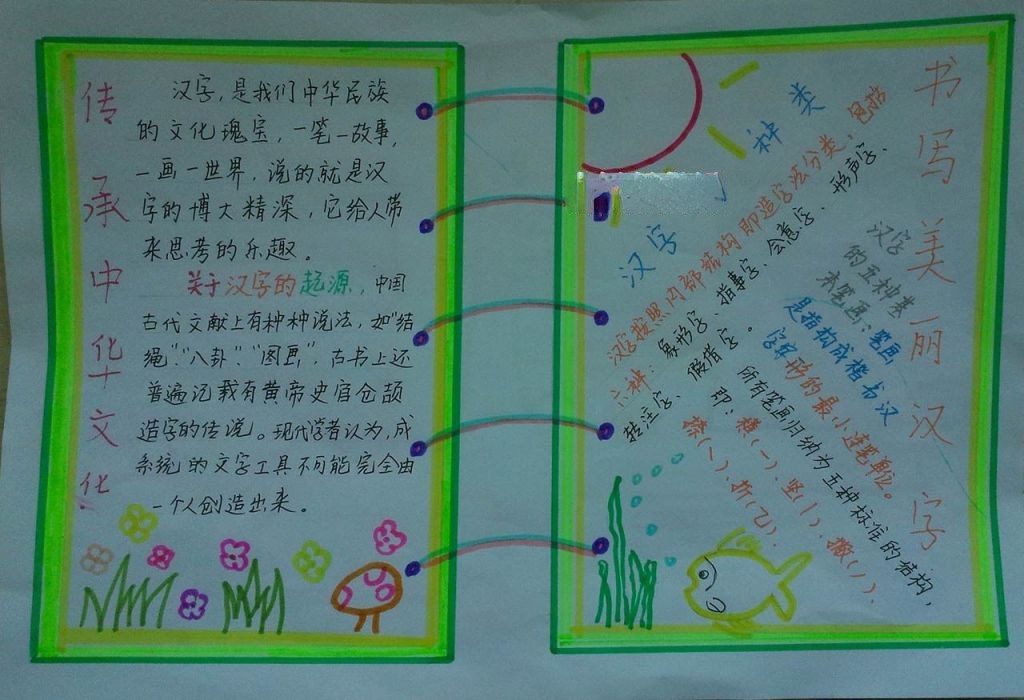 传承中华文化
汉字，是我们中华民族
的文化瑰宝，一笔一故事，
一画一世界，说的就是汉
字的博大精深，它给人带
来思考的乐趣。
关于汉字的起源，中国
古代文献上有种种说法，如“结
绳”“八卦”“图画”，古书上还
普遍记载有黄帝史官仓颉
造字的传说。现代学者认为，成
系统的文字工具不可能完全由
一个人创造出来。
书写美丽汉字
汉字
种类
汉字按照内部结构即造字法分类，是指
六种：象形字、指事字、会意字、形声字、
转注字、假借字。
汉字
的五种基
本笔画：笔画
是指构成楷书汉
字字形的最小连笔单位。
所有笔画归纳为五种标准的结构，
即：横(一)、竖(丨)、撇(丿)、
捺(㇏)、折(乙)。